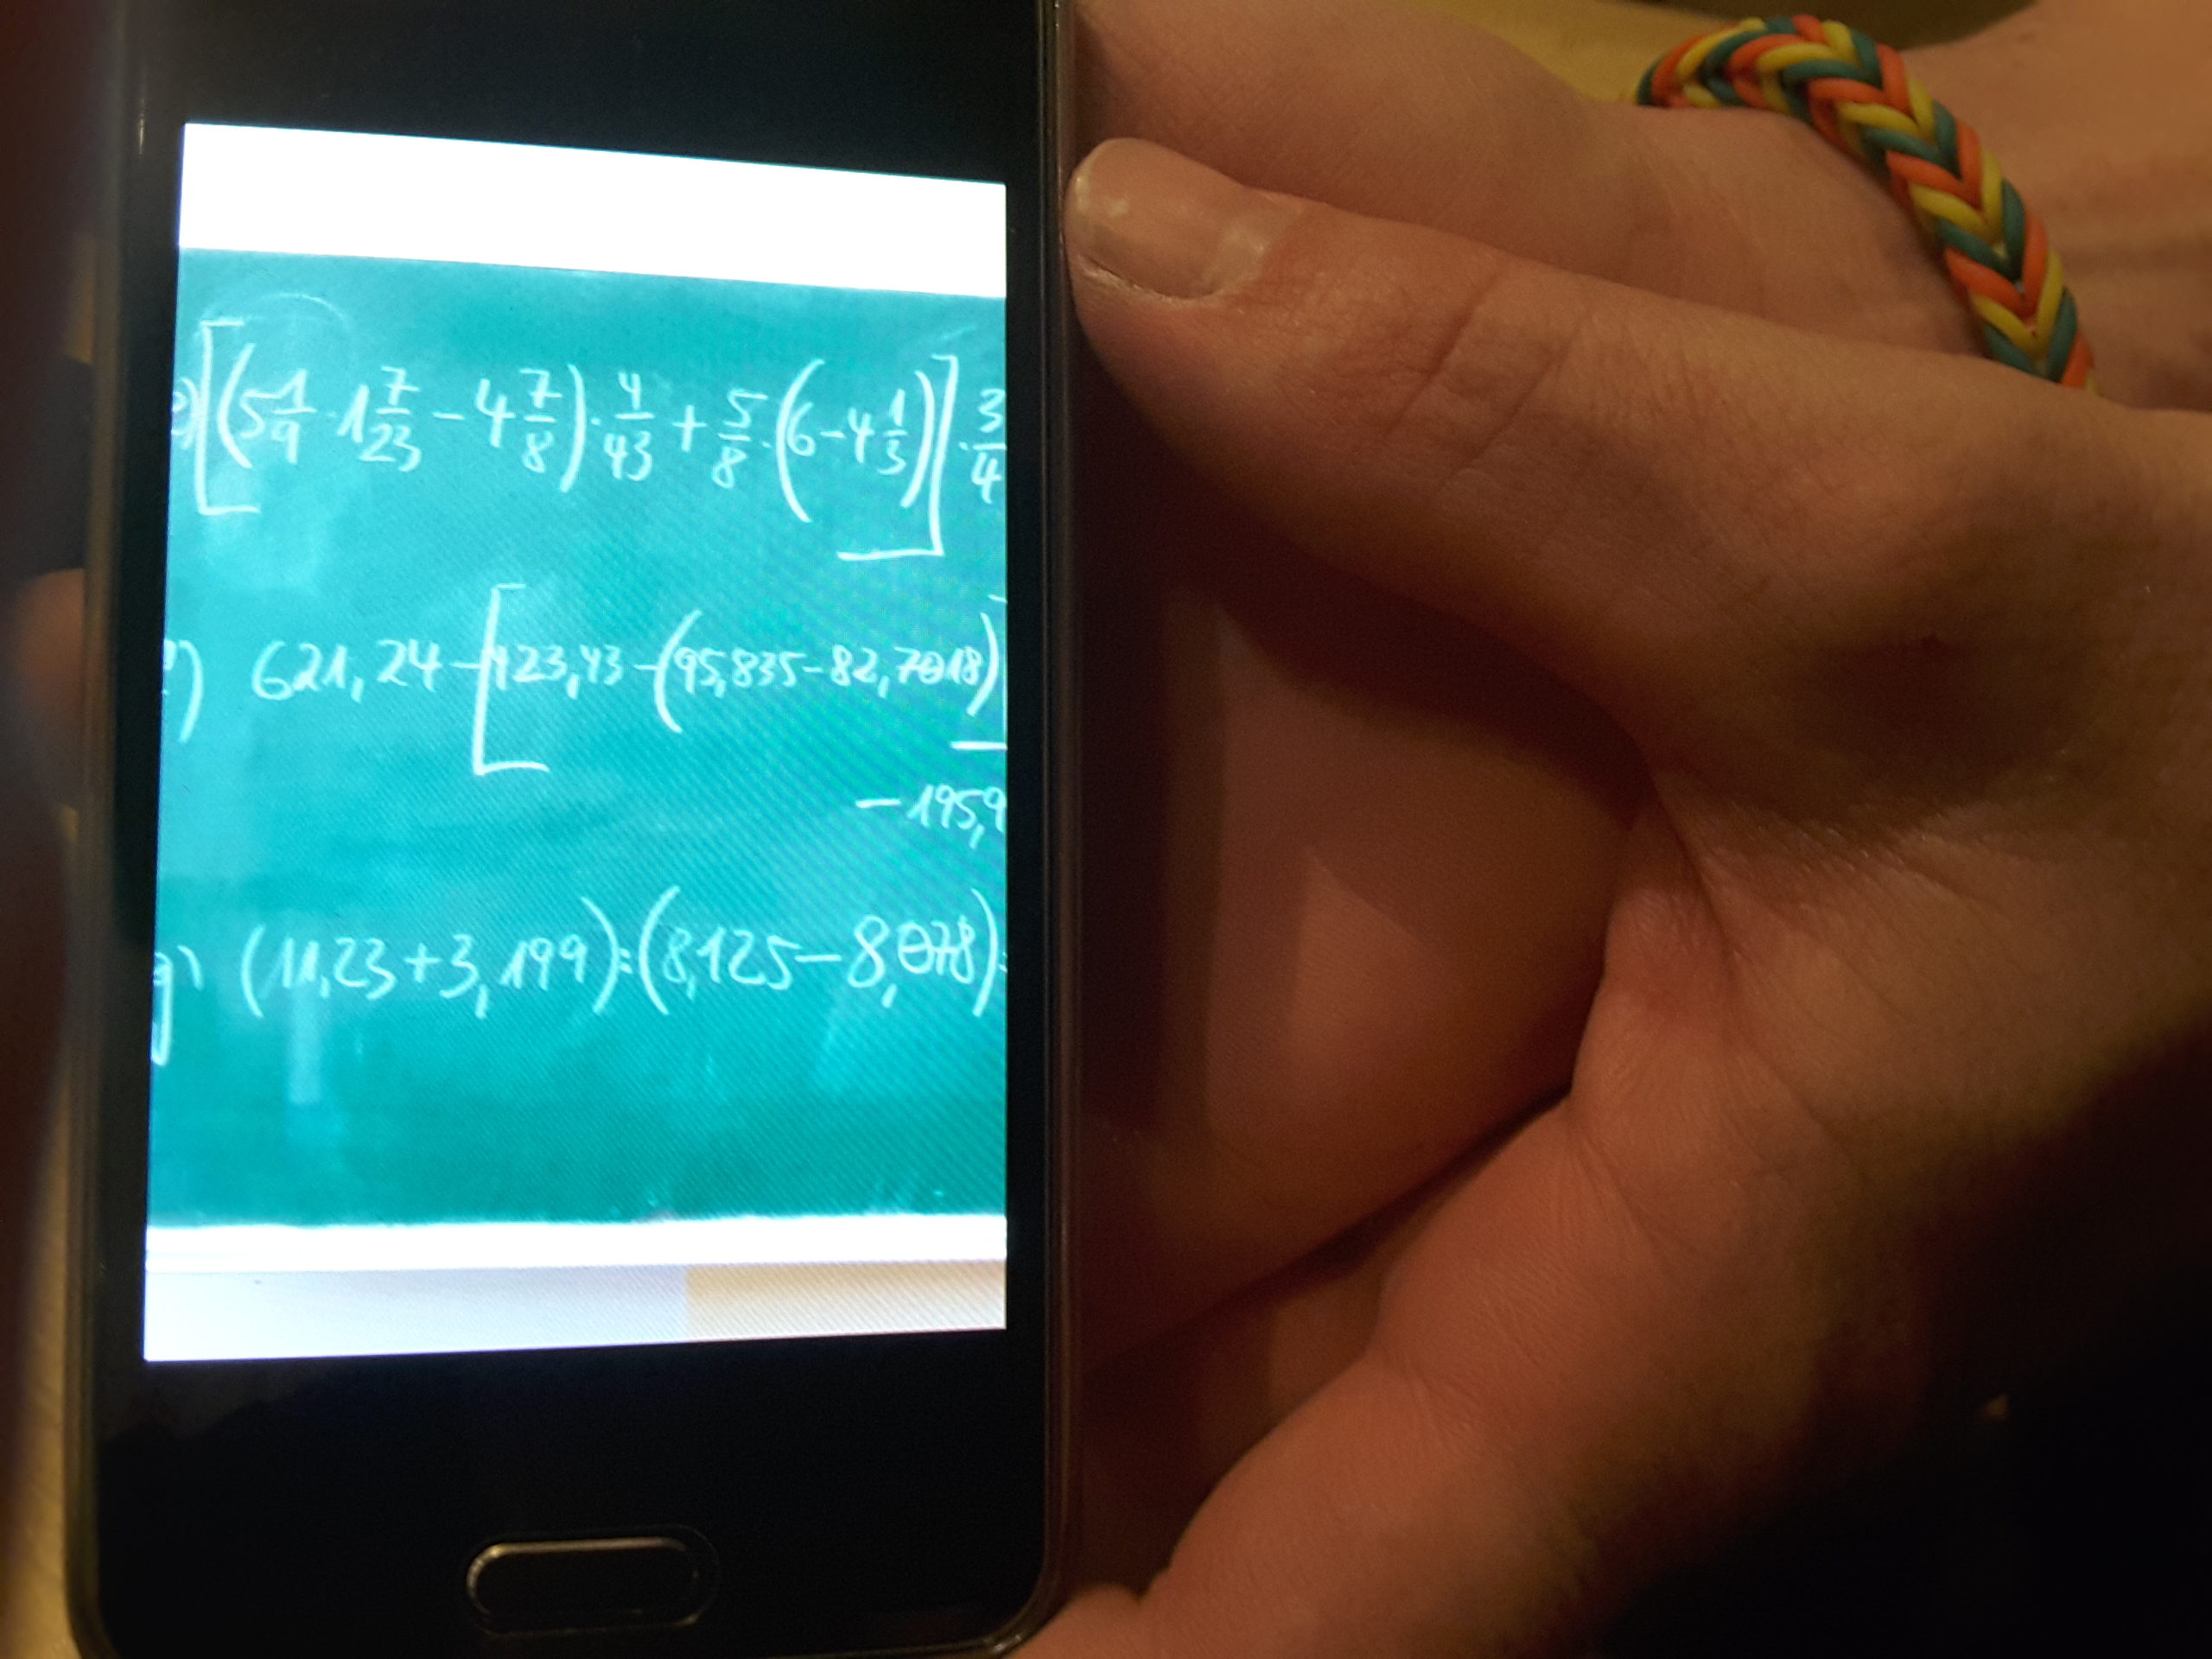 e) [(5 1/9 · 1 7/23 − 4 7/8) · 4/43 + 5/8 · (6 − 4 1/3)] · 3/4
f) 621,24 − [123,43 − (95,835 − 82,7018)
− 195,9
g) (11,23 + 3,199) : (8,125 − 8,078) =